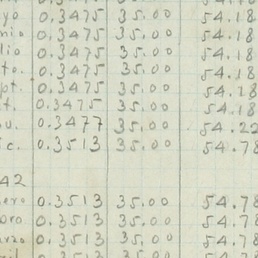 yo 0.3475 35.00 54.18
nio 0.3475 35.00 54.18
lio 0.3475 35.00 54.18
to. 0.3475 35.00 54.18
pt. 0.3475 35.00 54.18
t. 0.3475 35.00 54.18
ov. 0.3477 35.00 54.22
ic. 0.3513 35.00 54.78
42
ero 0.3513 35.00 54.78
bro 0.3513 35.00 54.78
rzo 0.3513 35.00 54.78